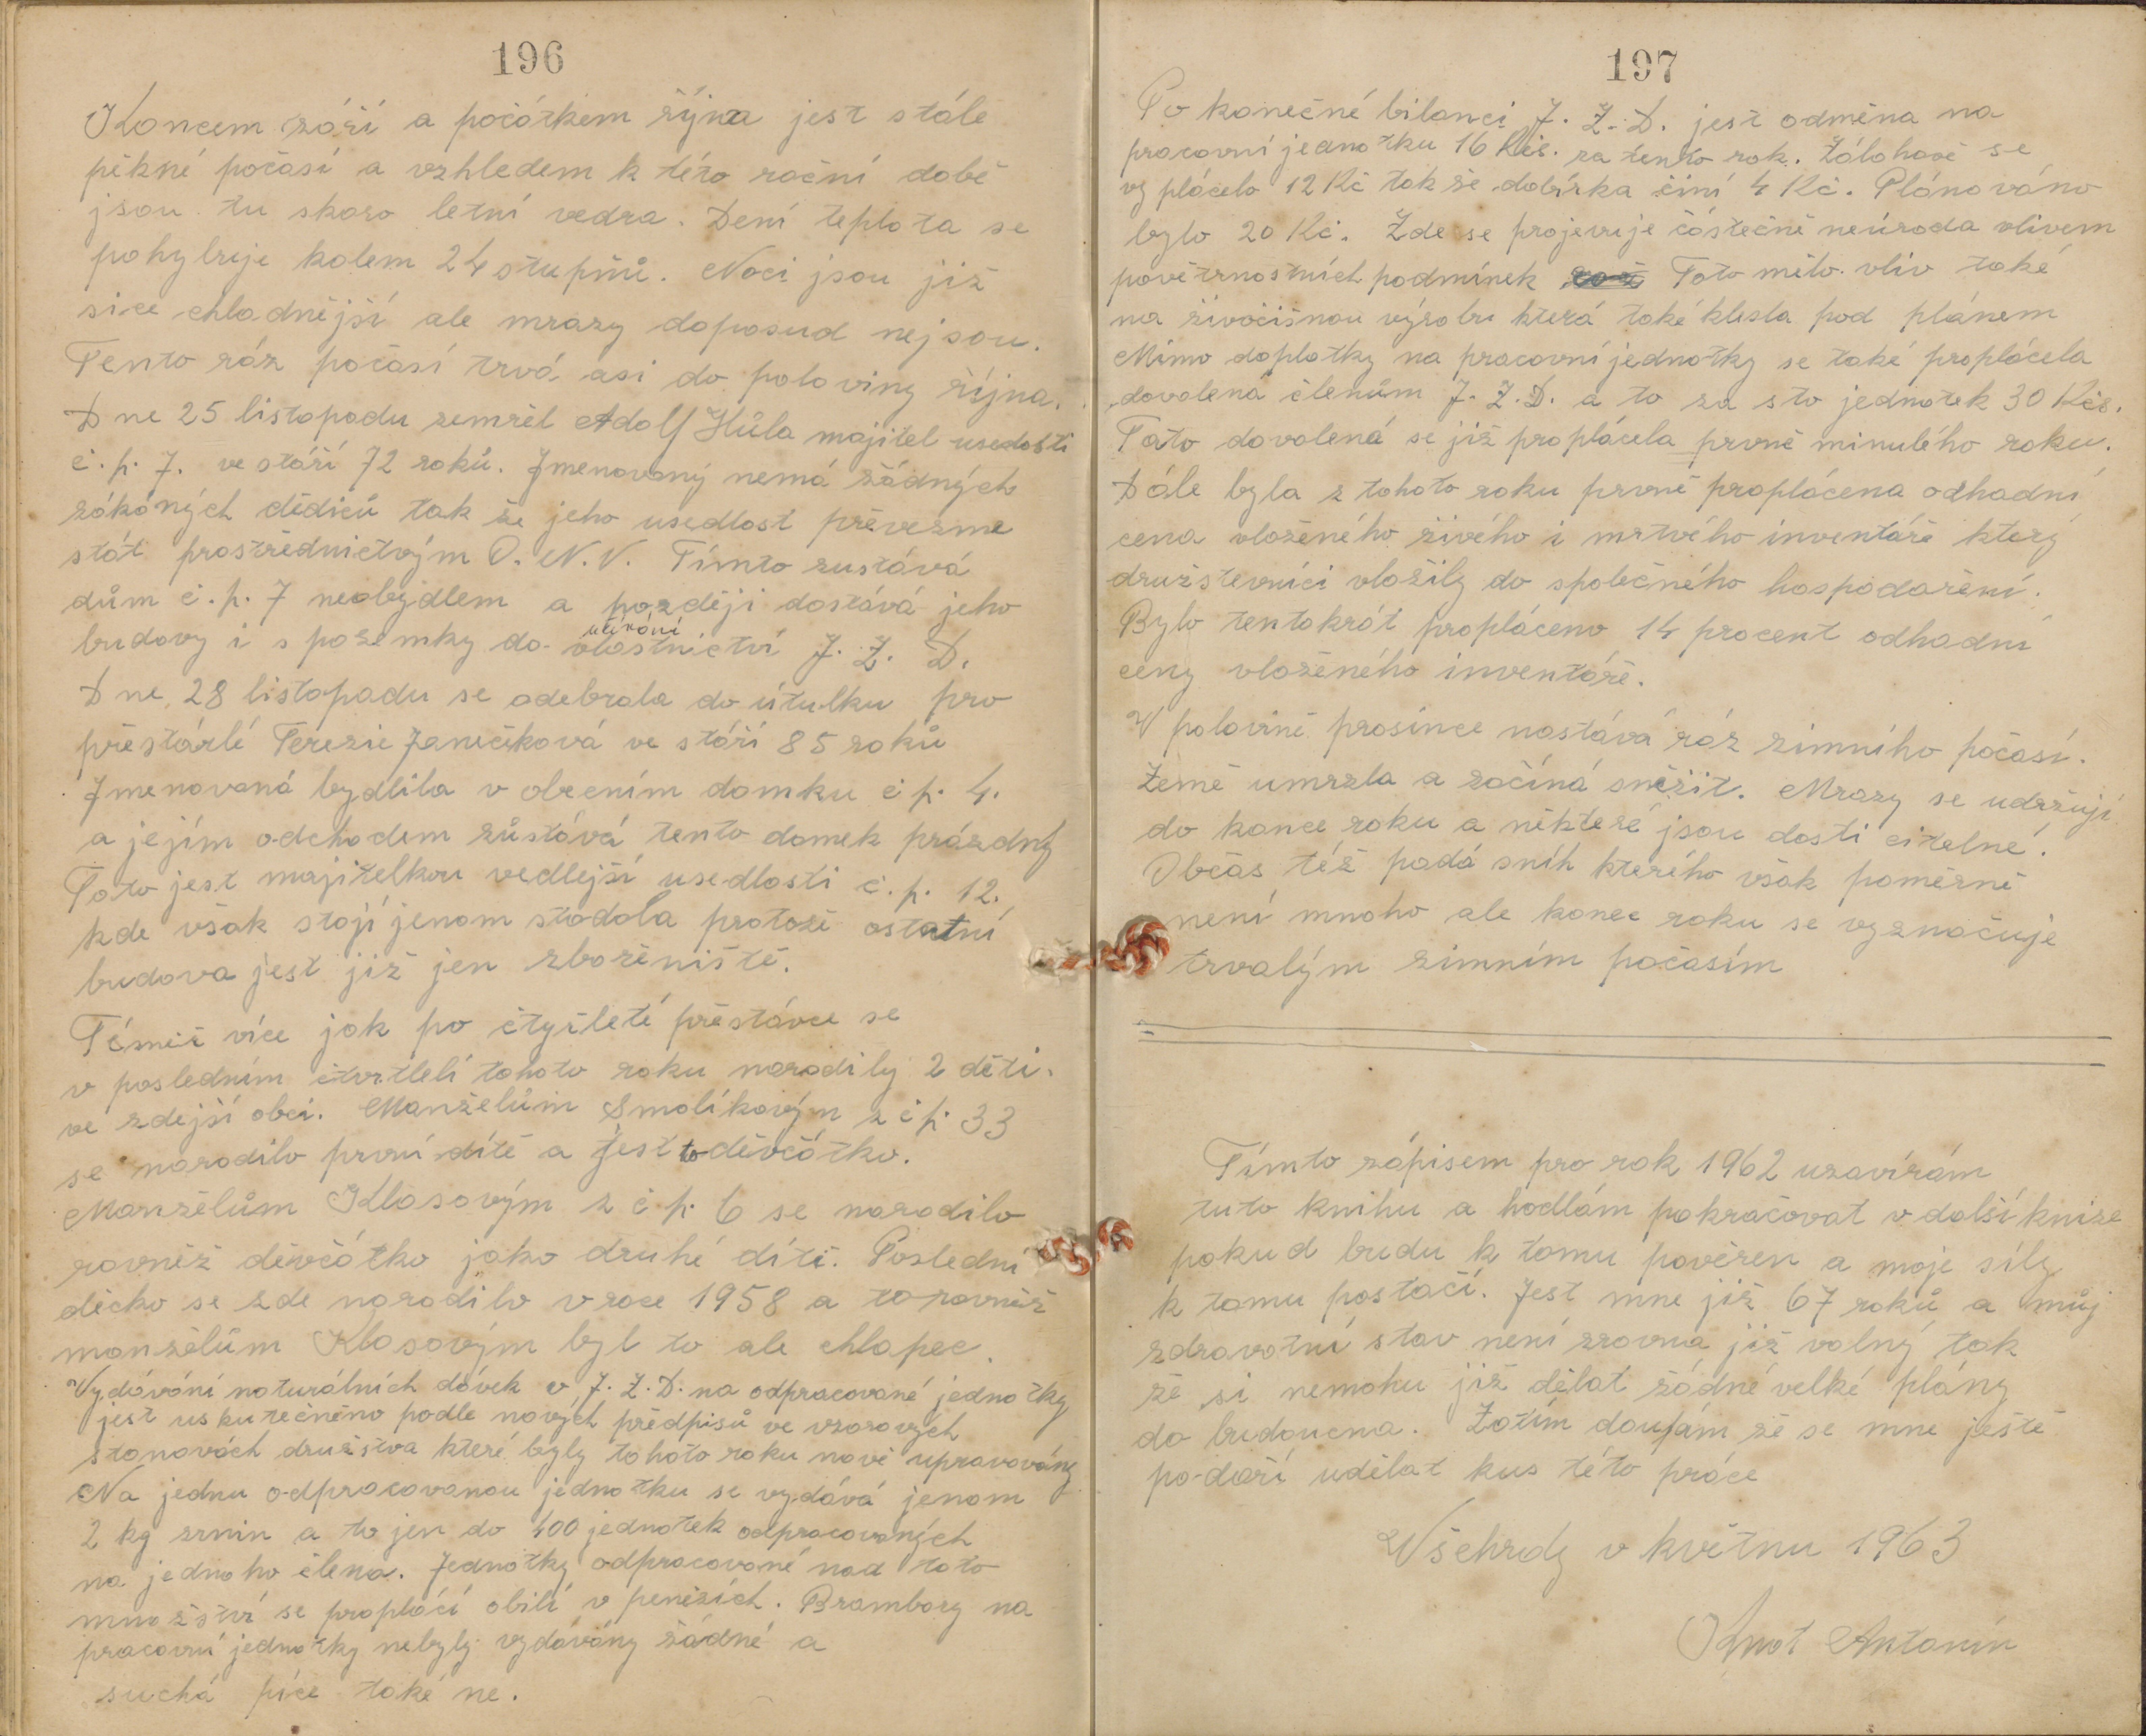 196
Koncem září a počátkem října jest stále
pěkné počasí a vzhledem k této roční době
jsou tu skoro letní vedra. Dení teplota se
pohybuje kolem 24 stupňů. Noci jsou již
sice chladnější ale mrazy doposud nejsou.
Tento ráz počasí trvá asi do poloviny října.
Dne 25 listopadu zemřel Adolf Hůla majitel usedlosti
č. p. 7. ve stáří 72 roků. Jmenovaný nemá žádných
zákoných dědiců tak že jeho usedlost převezme
stát prostřednictvým O. N. V. Tímto zustává
dům č. p. 7 neobydlem a později dostává jeho
užívání
budovy i s pozemky do vlastnictví J. Z. D.
Dne 28 listopadu se odebrala do útulku pro
přestárlé Terezie Janečková ve stáří 85 roků
Jmenovaná bydlila v obecním domku č p. 4.
a jejím odchodem zůstává tento domek prázdný
Tato jest majitelkou vedlejší usedlosti č. p. 12.
kde však stojí jenom stodola protože ostatní
budova jest již jen zbořeniště.
Téměř více jak po čtyřleté přestávce se
v posledním čtvrtletí tohoto roku narodily 2 děti.
ve zdejší obci. Manželům Smolíkovým z č p. 33
se narodilo první dítě a jest to děvčátko.
Manželům Klosovým z č p. 6 se narodilo
rovněž děvčátko jako druhé dítě. Poslední
děcko se zde narodilo v roce 1958 a to rovněž
manželům Klosovým byl to ale chlapec.
Vydávání naturálních dávek v J. Z. D. na odpracované jednotky
jest uskutečněno podle nových předpisů ve vzorových
stanovách družstva které byly tohoto roku nově upravovány
Na jednu odpracovanou jednotku se vydává jenom
2 kg zrnin a to jen do 400 jednotek odpracovaných
na jednoho člena. Jednotky odpracované nad toto
množství se proplácí obilí v penězích. Brambory na
pracovní jednotky nebyly vydávány žádné a
suchá píce také ne.
197
Po konečné bilanci J. Z. D. jest odměna na
pracovní jednotku 16 Kčs. za tento rok. Zálohově se
vyplácelo 12 Kč tak že dobírka činí 4 Kč. Plánováno
bylo 20 Kč. Zde se projevuje částečně neúroda vlivem
povětrnostních podmínek Toto mělo vliv také
na živočišnou výrobu která také klesla pod plánem
Mimo doplatky na pracovní jednotky se také proplácela
dovolená členům J. Z. D. a to za sto jednotek 30 Kčs.
Tato dovolená se již proplácela prvně minulého roku.
Dále byla z tohoto roku prvně proplácena odhadní
cena vloženého živého i mrtvého inventáře který
družstevníci vložily do společného hospodaření.
Bylo tentokrát propláceno 14 procent odhadní
ceny vloženého inventáře.
V polovině prosince nastává ráz zimního počasí.
Země umrzla a začíná sněžit. Mrazy se udržují
do konce roku a některé jsou dosti citelné.
Občas též padá sníh kterého však poměrně
není mnoho ale konec roku se vyznačuje
trvalým zimním počasím
Tímto zápisem pro rok 1962 uzavírám
tuto knihu a hodlám pokračovat v další knize
pokud budu k tomu pověřen a moje síly
k tomu postačí. Jest mne již 67 roků a můj
zdravotní stav není zrovna již valný tak
že si nemohu již dělat žádné velké plány
do budoucna. Zatím doufám že se mne ještě
podaří udělat kus této práce
Všehrdy v květnu 1963
Knot Antonín